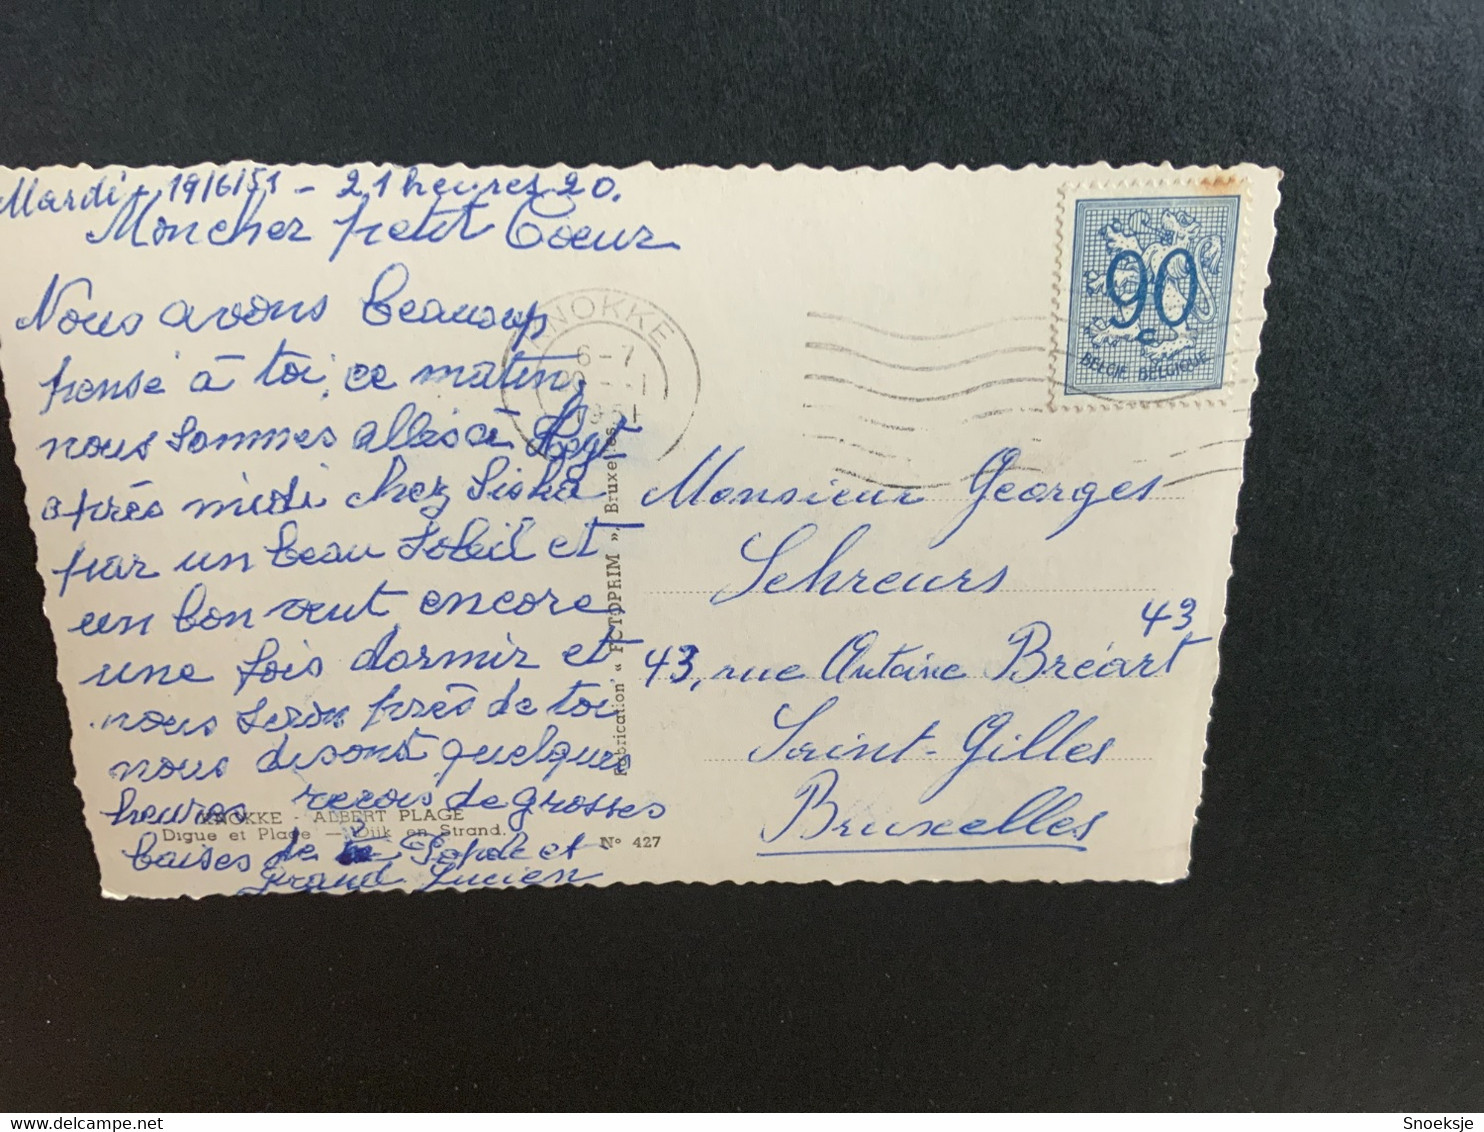 Mardi 19/6/51 - 21 heures 20.
Mon cher petit Coeur
Nous avons beaucoup
pensé à toi, ce matin,
nous sommes allés à
après midi chez Siska
par un beau soleil et
un bon vent encore
une fois dormir et
nous serons près de toi
nous disons quelques
heures reçois de grosses
baises de la et
Grand Lucien
KNOKKE - ALBERT PLAGE
Digue et Plage — Dijk en Strand.
N° 427
Fabrication « FOTOPRIM », Bruxelles.
KNOKKE
6-7
1951
90
c
BELGIE BELGIQUE
Monsieur Georges
Schreurs
43
43, rue Antoine Bréart
Saint-Gilles
Bruxelles
Snoeksje